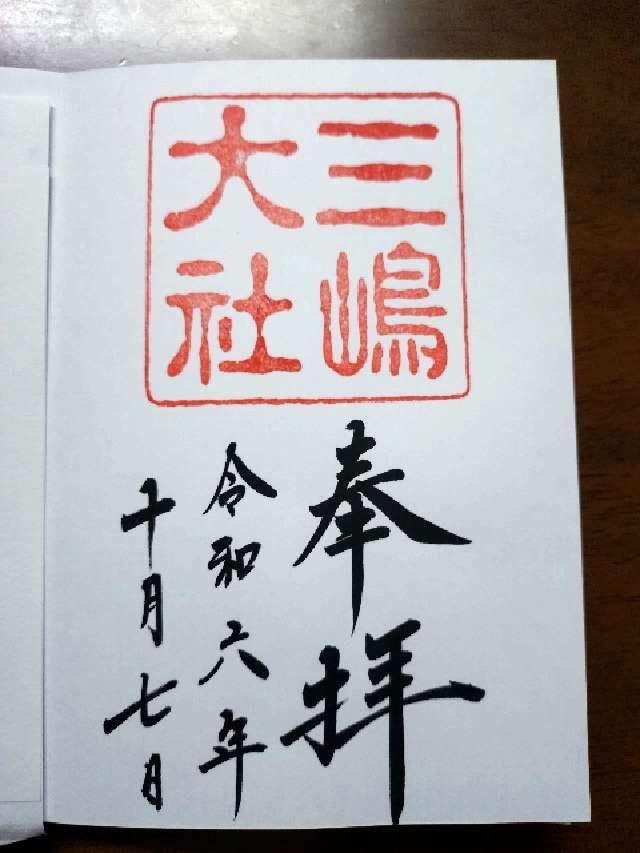 三嶋
大社
奉拝
令和六年
十月七日